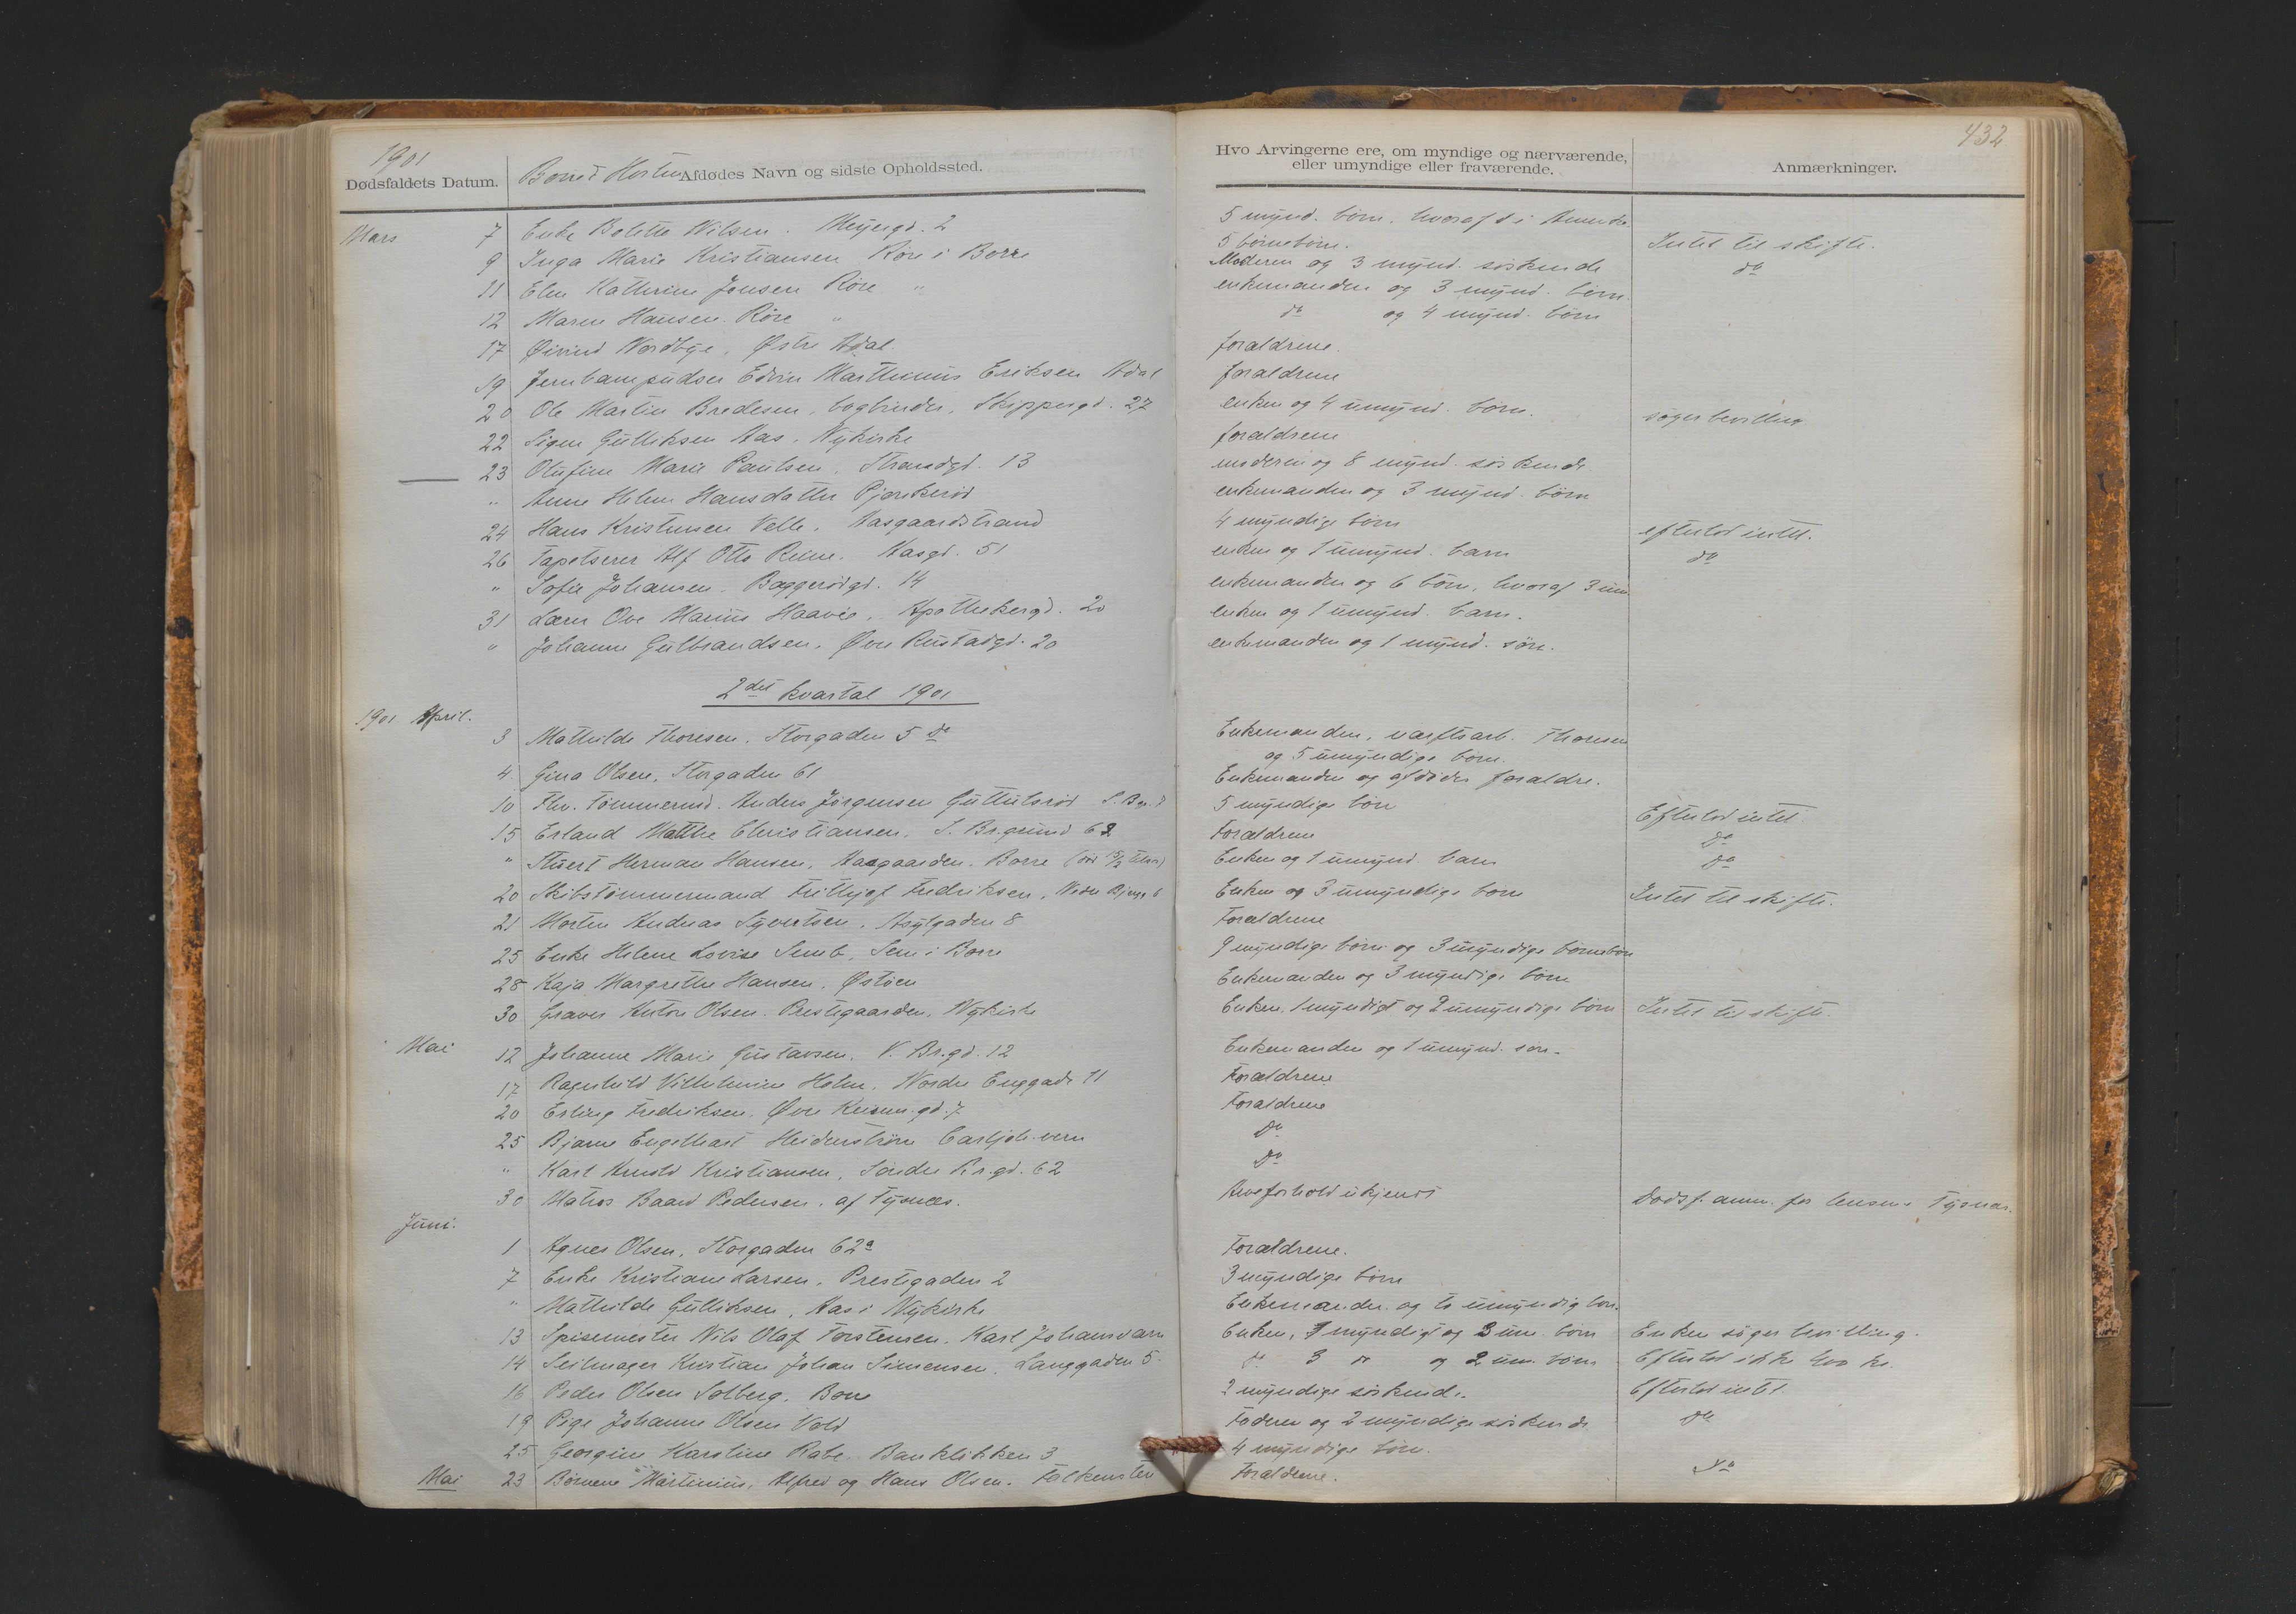 1901
Dødsfaldets Datum.
Borre & Horten
Afdødes Navn og sidste Opholdssted.
Hvo Arvingerne ere, om myndige og nærværende,
eller umyndige eller fraværende.
Anmærkninger.
432
Mars 7 Enke Bolette Nilsen. Meyergd. 2 5 mynd. børn, hvoraf 1 i Amerika
5 børnebørn. Intet til skifte.
9 Inga Marie Kristiansen Røre i Borre Moderen og 3 mynd. søskende do
11 Elen Kathrine Jonsen Røre " enkemanden og 3 mynd. børn.
12 Maren Hansen. Røre " do og 4 mynd. børn
17 Øivind Nordbye, Østre Adal forældrene.
19 Jernbanepudser Edvin Marthinius Eriksen Adal forældrene
20 Ole Martin Bredesen, bogbinder, Skippergd. 27 enken og 4 umynd. børn. søger bevilling
22 Signe Gulliksen Aas, Nykirke forældrene
23 Olufine Marie Paulsen, Strandgd. 13 moderen og 8 mynd. søskende
" Anne Helene Hansdatter Pjonkerød enkemanden og 3 mynd. børn
24 Hans Kristensen Velle, Aasgaardstrand 4 myndige børn efterlod intet.
26 Tapetserer Alf Otto Reine. Aasgd. 51 enken og 1 umynd. barn do
" Sofie Johansen. Baggerødgd. 14 enkemanden og 6 børn, hvoraf 3 um
31 Lærer Ove Marius Haavie, Apothekergd. 20 enken og 1 umynd. barn.
" Johanne Gulbrandsen, Øvre Rustadgd. 20 enkemanden og 1 mynd. søn.
2det kvartal 1901
1901 April.
3 Mathilde Thoresen, Storgaden 5 Enkemanden, verftsarb. Thoresen
og 5 umyndige børn.
4 Gina Olsen, Storgaden 61 Enkemanden og afdødes forældre.
10 Fhv. Tømmermd. Anders Jørgensen 5 myndige børn Efterlod intet
15 Erland Christiansen, S. Br.grund 62 Forældrene do
" Herman Hansen, Aasgaarden. Borre Enken og 1 umynd. barn do
20 Skibstømmermand Frithjof Fredriksen, Enken og 3 umyndige børn Intet til skifte.
21 Morten Andreas Syvertsen, Asylgaden 8 Forældrene
25 Enke Helene Lovise Semb, Sem i Borre 9 myndige børn og 3 myndige børnebørn
28 Kaja Margrethe Hansen, Østøen Enkemanden og 3 myndige børn
30 Graver Anton Olsen. Prestegaarden, Nykirke Enken, 1 myndigt og 2 umyndige børn Intet til skifte.
Mai 12 Johanne Marie Gustavsen, V. Br.gd. 12 Enkemanden og 1 umynd. søn.
17 Ragnhild Vilhelmine Holm, Nordre Enggade 11 Forældrene
20 Erling Fredriksen. Øvre Keiserm.gd. 7 Forældrene
25 Bjarne Engelhart Heiderstrøm Carljoh.vern do
" Karl Arnold Kristiansen, Søndre Br.gd. 62 do
30 Matros Baard Pedersen, af Tysnæs. Arveforhold ukjendt Dødsf. anm. for lensm. Tysnæs.
Juni.
1 Agnes Olsen, Storgaden 62a Forældrene.
7 Enke Kristiane Larsen, Prestegaden 2 3 myndige børn
" Mathilde Gulliksen, Aas i Nykirke Enkemanden og to umyndig børn.
13 Spisemester Nils Olaf Torstensen. Karl Johansværn Enken, 1 myndigt og 3 um. børn Enken søger bevilling.
14 Seilmager Kristian Johan Simensen, Langgaden 5 do 3 do og 2 um. børn Efterlod ikke 400 kr.
16 Peder Olsen Solberg, Borre 2 myndige søskende. Efterlod intet
19 Pige Johanne Olsen Vold Faderen og 2 myndige søskende do
25 Georgine Karoline Rabe. Banklökken 3 4 myndige børn.
Mai 23 Børnene Martinius, Alfred og Hans Olsen. Falkensten Forældrene. do